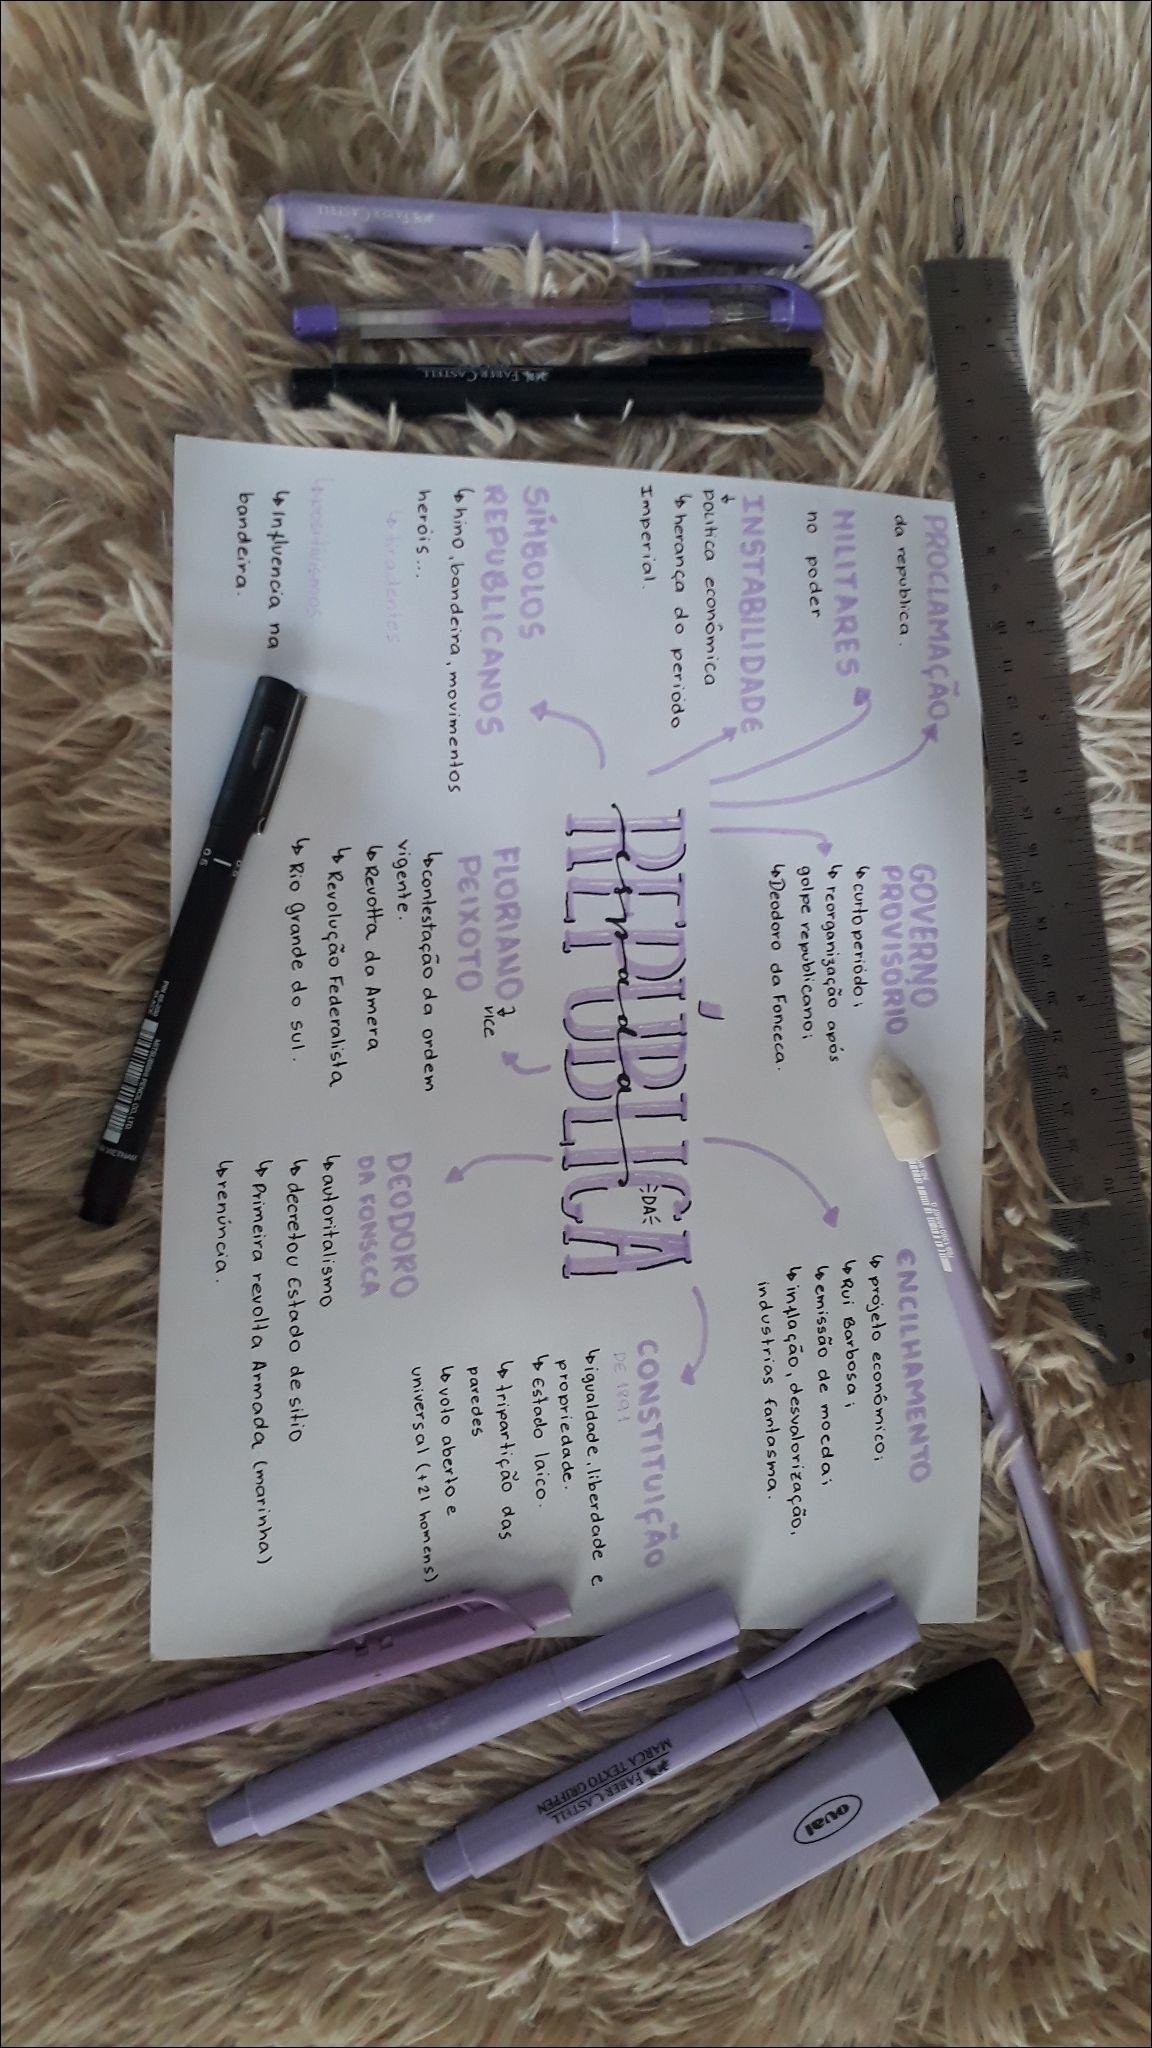 PROCLAMAÇÃO
da republica.
MILITARES
no poder
INSTABILIDADE
política econômica
↳ herança do período
Imperial.
SÍMBOLOS
REPUBLICANOS
↳ hino, bandeira, movimentos
heróis...
↳ tiradentes
↳ positivismos
↳ Influencia na
bandeira.
GOVERNO
PROVISÓRIO
↳ curto periódo;
↳ reorganização após
golpe republicano;
↳ Deodoro da Fonceca.
REPÚBLICA
DA
espada
FLORIANO
PEIXOTO
vice
↳ contestação da ordem
vigente.
↳ Revolta da Amera
↳ Revolução Federalista
↳ Rio grande do sul.
ENCILHAMENTO
↳ projeto econômico;
↳ Rui Barbosa;
↳ emissão de moeda;
↳ inflação, desvalorização,
industrias fantasma.
CONSTITUIÇÃO
DE 1891
↳ igualdade, liberdade e
propriedade.
↳ Estado laico.
↳ tripartição das
paredes
↳ voto aberto e
universal (+21 homens)
DEODORO
DA FONSECA
↳ autoritalismo
↳ decretou Estado de sítio
↳ Primeira revolta Armada (marinha)
↳ renúncia.
FABER CASTELL
FABER CASTELL
0.5
MITSUBISHI PENCIL CO., LTD.
VIETNAM
FABER CASTELL
MARCA TEXTO GRIFPEN
oval